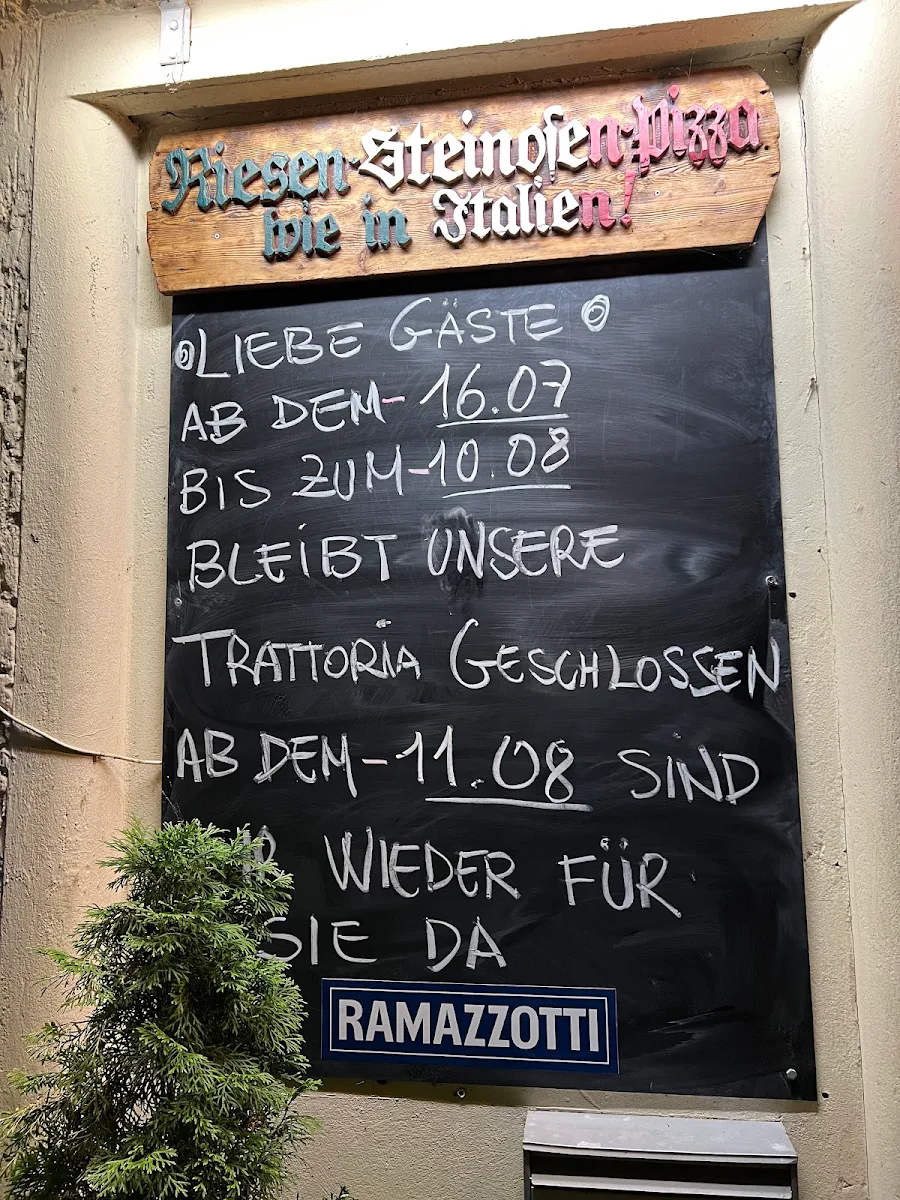 Riesen-Steinofen-Pizza
wie in Italien!
LIEBE GÄSTE
AB DEM- 16.07
BIS ZUM-10.08
BLEIBT UNSERE
TRATTORIA GESCHLOSSEN
AB DEM-11.08 SIND
WIEDER FÜR
SIE DA
RAMAZZOTTI